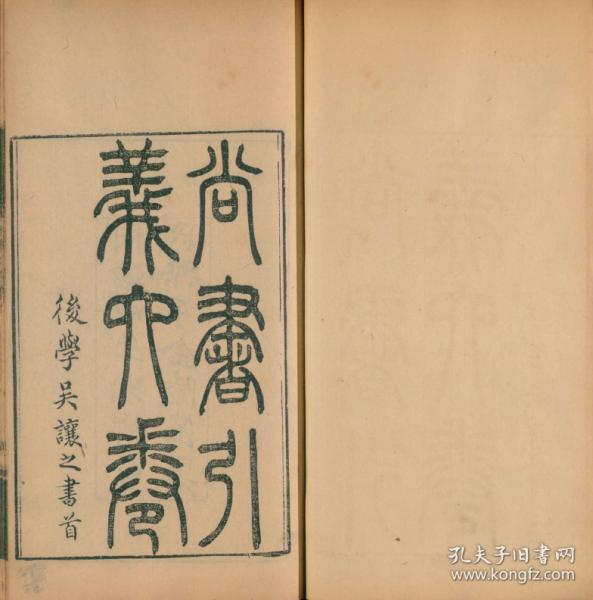 尚書引
義六卷
後學吳讓之書首
孔夫子旧书网
www.kongfz.com